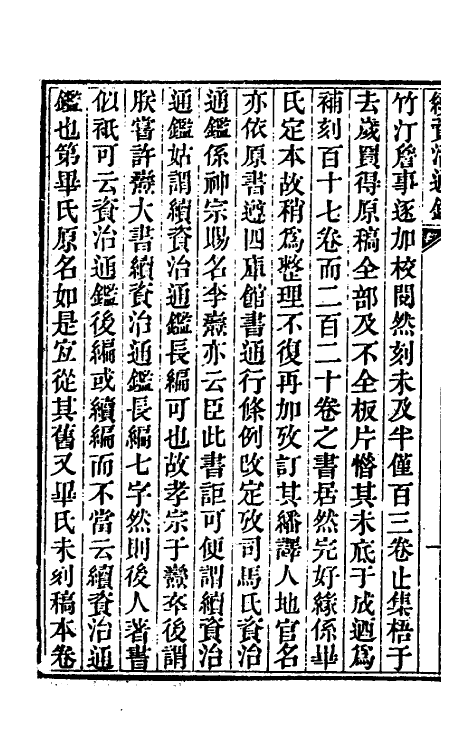 續資治通鑑 序
竹汀詹事逐加校閱然刻未及半僅百三卷止集梧于
去歲買得原稿全部及不全板片惜其未底于成迺爲
補刻百十七卷而二百二十卷之書居然完好緣係畢
氏定本故稍爲整理不復再加攷訂其繙譯人地官名
亦依原書遵四庫館書通行條例改定攷司馬氏資治
通鑑係神宗賜名李燾亦云臣此書詎可便謂續資治
通鑑姑謂續資治通鑑長編可也故孝宗于燾卒後謂
朕嘗許燾大書續資治通鑑長編七字然則後人著書
似祇可云資治通鑑後編或續編而不當云續資治通
鑑也第畢氏原名如是宜從其舊又畢氏未刻稿本卷